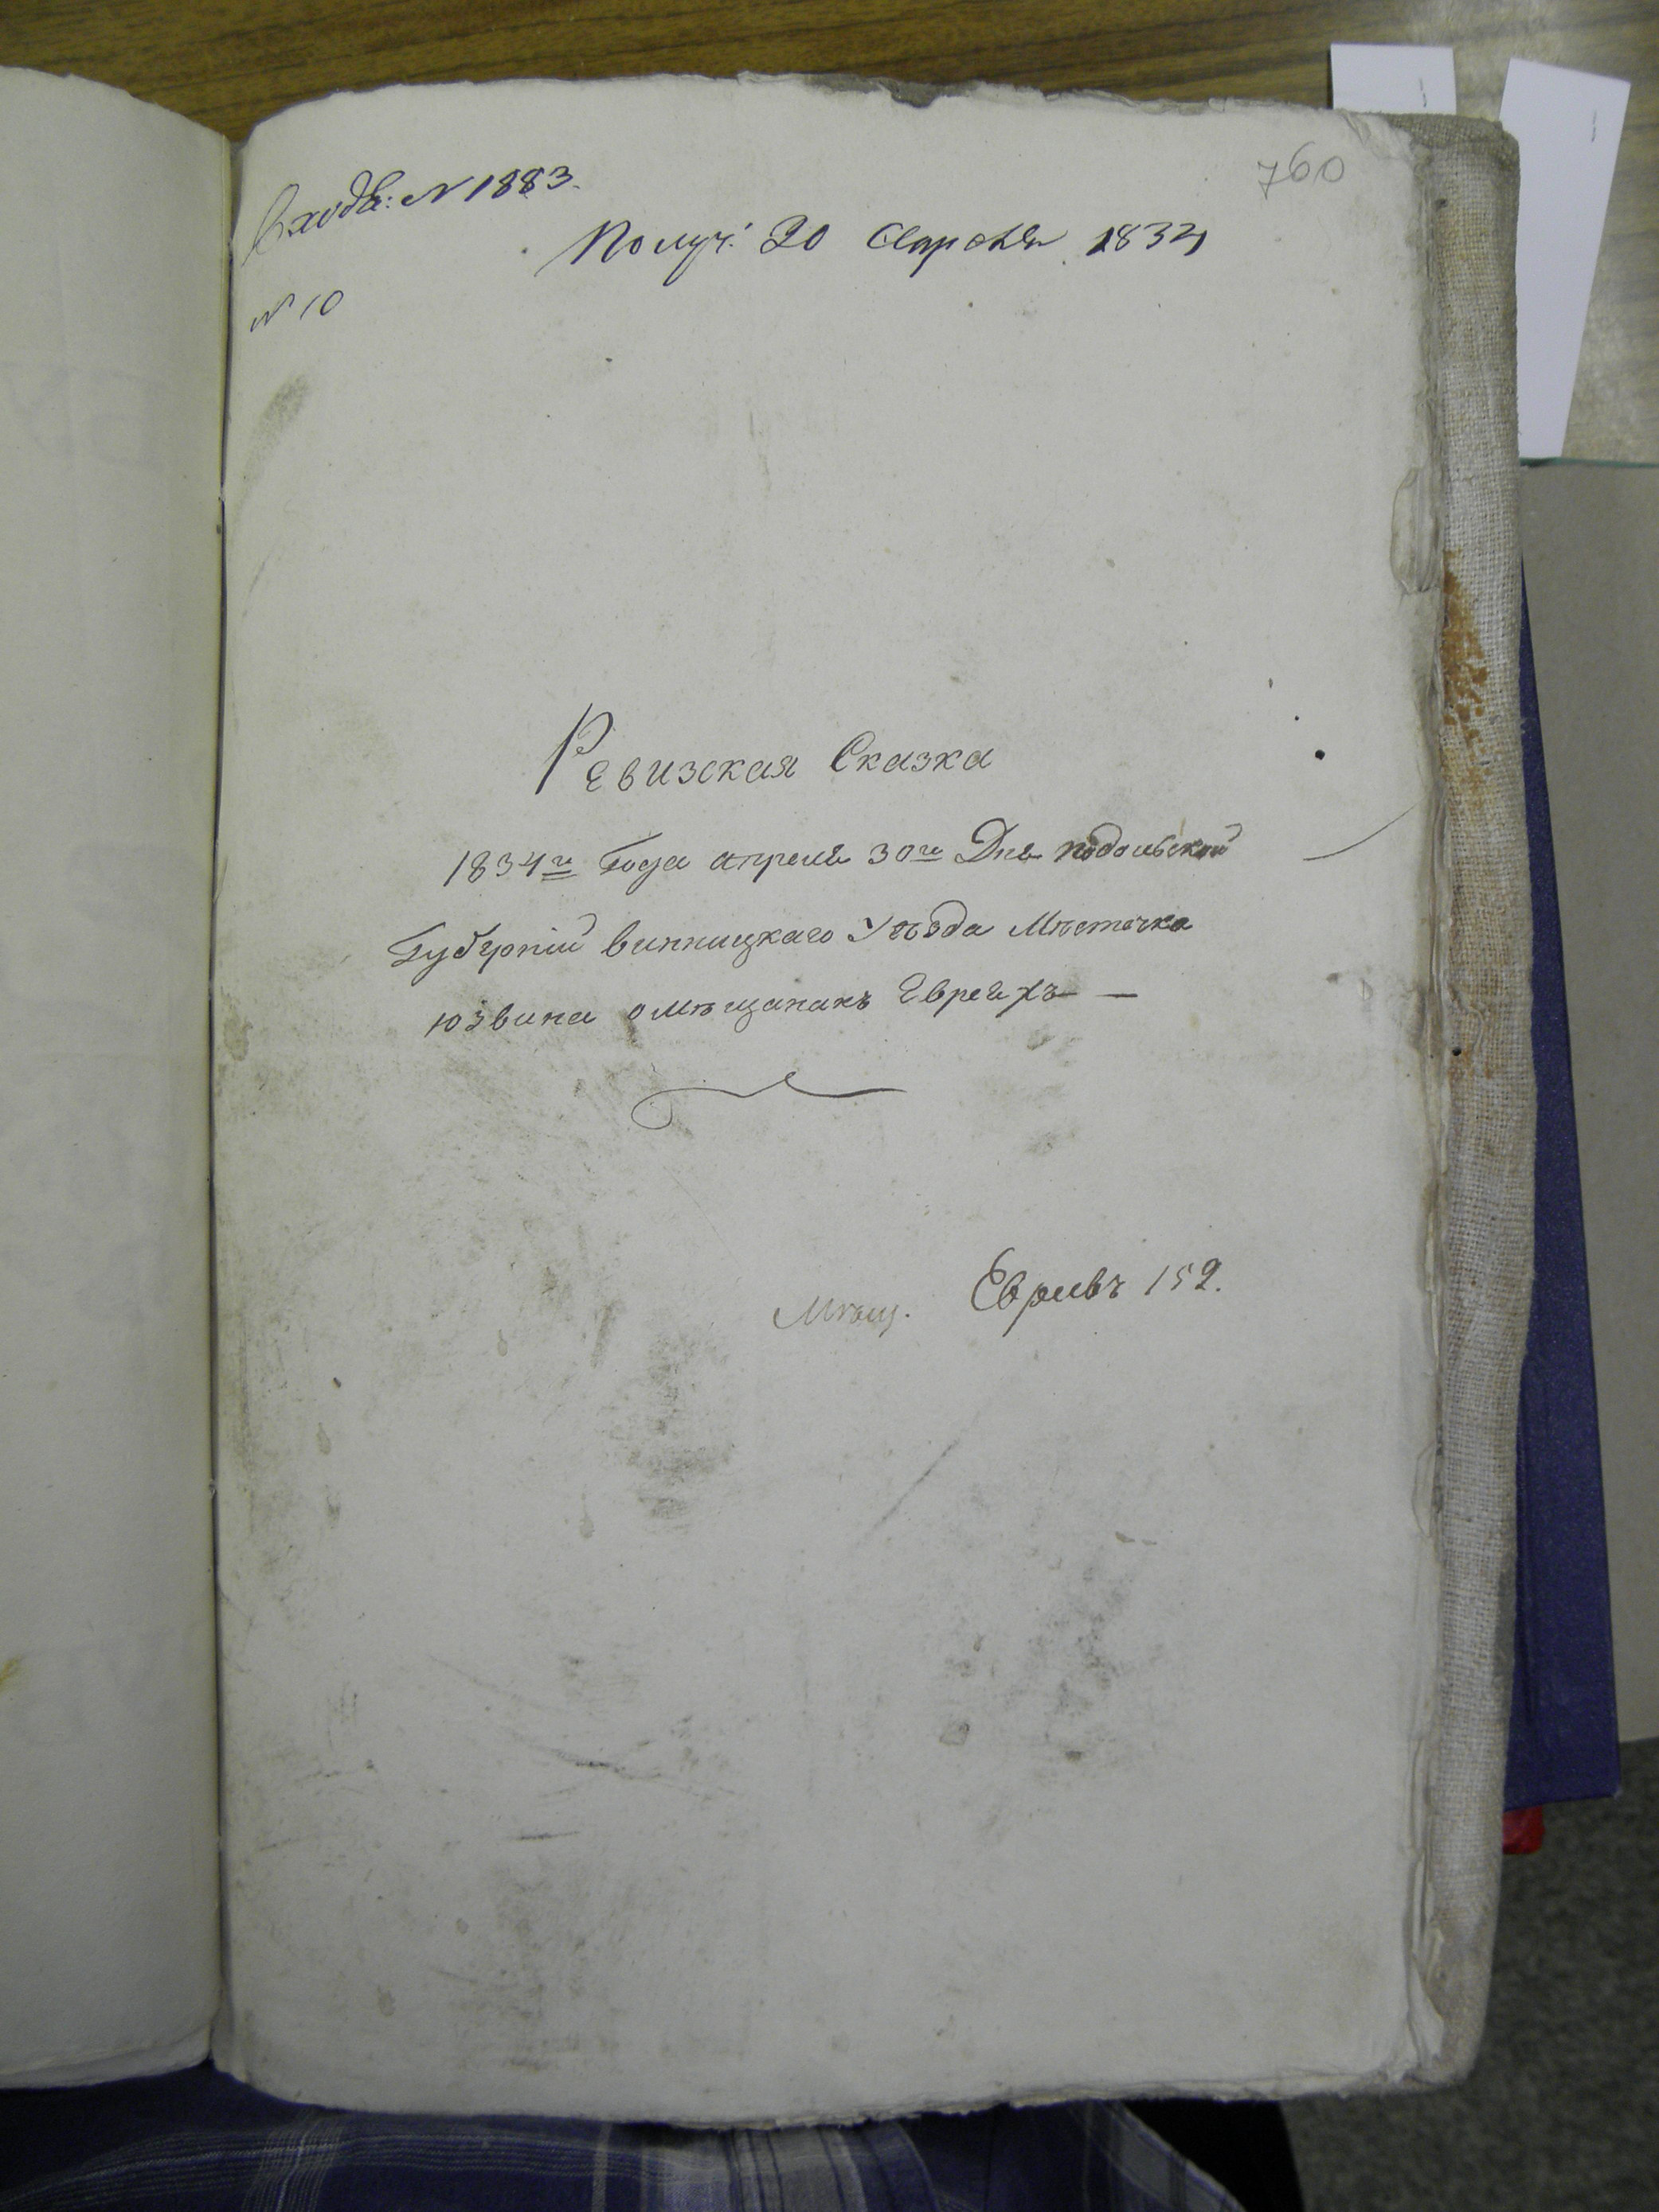 Входящ: N 1883.
760
Получ: 30 Апрѣля 1834
N 10
Ревизская Сказка
1834го Года апреля 30го Дня подольской
Губерніи винницкаго Уѣзда Мѣстечка
юзвина о мѣщанахъ Евреяхъ —
Мѣщ. Евреевъ 152.